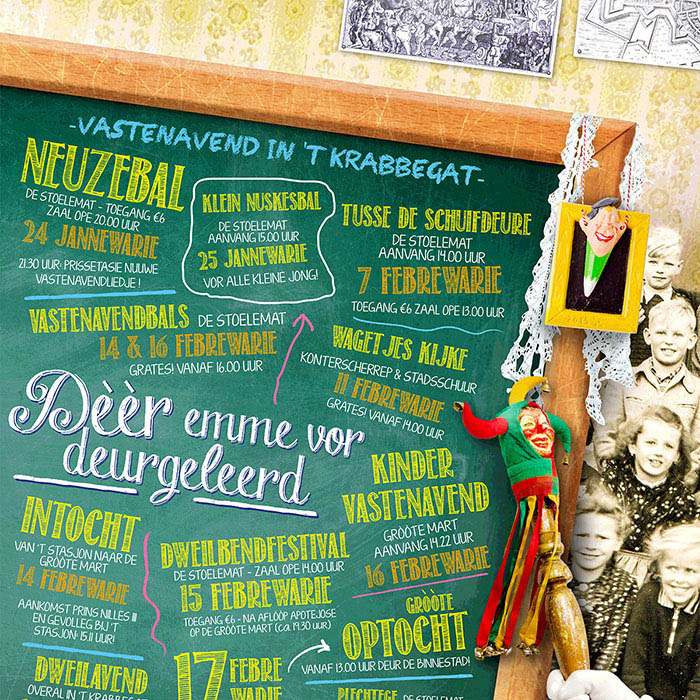 -VASTENAVEND IN 'T KRABBEGAT-
NEUZEBAL
DE STOELEMAT - TOEGANG €6
ZAAL OPE 20.00 UUR
24 JANNEWARIE
21.30 UUR: PRISSETASIE NIUUWE
VASTENAVENDLIEDJE !
KLEIN NUSKESBAL
DE STOELEMAT
AANVANG 15.00 UUR
25 JANNEWARIE
VOR ALLE KLEINE JONG!
TUSSE DE SCHUIFDEURE
DE STOELEMAT
AANVANG 14.00 UUR
7 FEBREWARIE
TOEGANG €6 ZAAL OPE 13.00 UUR
VASTENAVENDBALS DE STOELEMAT
14 & 16 FEBREWARIE
GRATES! VANAF 16.00 UUR
WAGETJES KIJKE
KONTERSCHERREP & STADSSCHUUR
11 FEBREWARIE
GRATES! VANAF 14.00 UUR
Dèèr emme vor
deurgeleerd
KINDER
VASTENAVEND
GRÒÒTE MART
AANVANG 14.22 UUR
16 FEBREWARIE
INTOCHT
VAN 'T STASJON NAAR DE
GRÒÒTE MART
14 FEBREWARIE
AANKOMST PRINS NILLES II
EN GEVOLLEG BIJ 'T
STASJON: 15.11 UUR!
DWEILBENDFESTIVAL
DE STOELEMAT - ZAAL OPE 14.00 UUR
15 FEBREWARIE
TOEGANG €6 - NA AFLÒÒP APOTEJOSE
OP DE GRÒÒTE MART (ca. 19.30 uur)
GRÒÒTE
OPTOCHT
VANAF 13.00 UUR DEUR DE BINNESTAD!
DWEILAVEND
OVERAL IN 'T KRABBEGAT
17 FEBRE
WARIE
PLECHTEGE